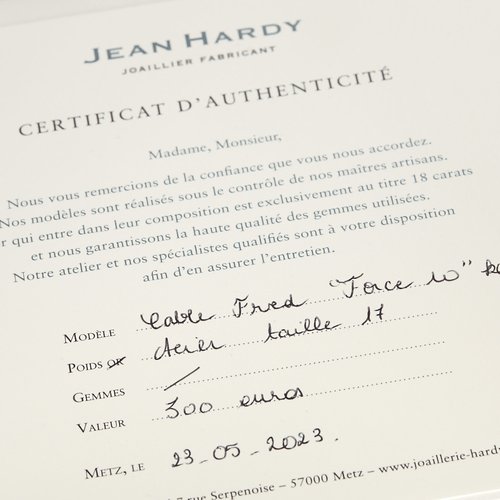 JEAN HARDY
JOAILLIER FABRICANT
CERTIFICAT D'AUTHENTICITÉ
Madame, Monsieur,
Nous vous remercions de la confiance que vous nous accordez.
Nos modèles sont réalisés sous le contrôle de nos maîtres artisans.
r qui entre dans leur composition est exclusivement au titre 18 carats
et nous garantissons la haute qualité des gemmes utilisées.
Notre atelier et nos spécialistes qualifiés sont à votre disposition
afin d'en assurer l'entretien.
MODÈLE Cable Fred "Force 10"
POIDS OR Acier taille 17
GEMMES
VALEUR 300 euros
METZ, LE 23-05-2023.
rue Serpenoise – 57000 Metz – www.joaillerie-hard